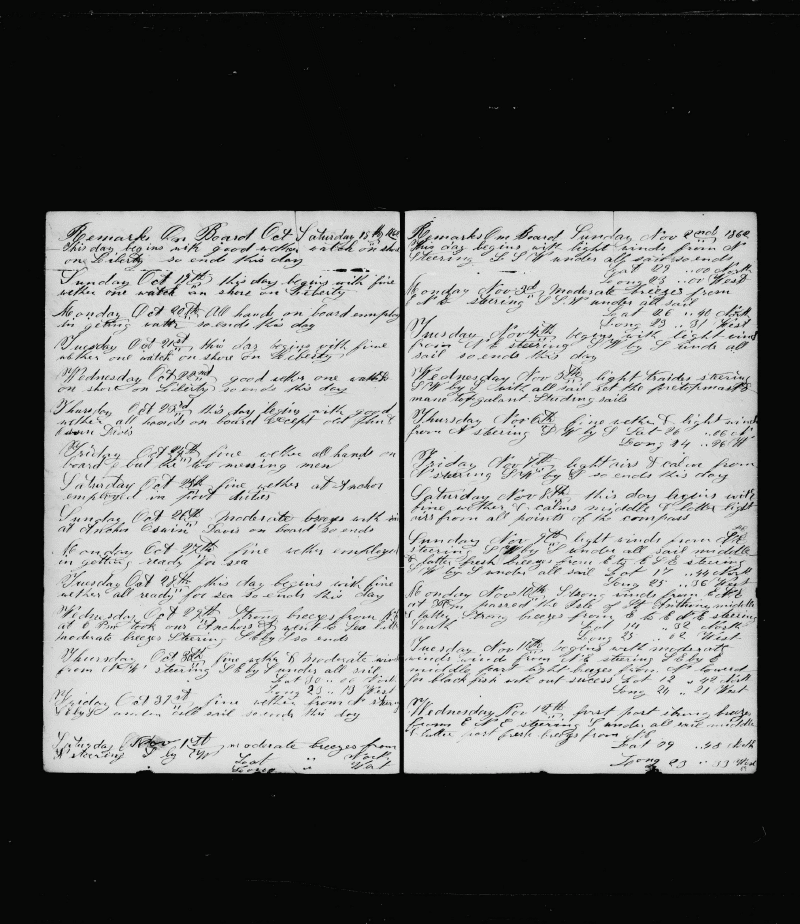 Remarks On Board Oct Saturday 18th 1862
This day begins with good wether watch on shore
on Liberty so ends this day
Sunday Oct 19th this day begins with fine
wether one watch on shore on Liberty
Monday Oct 20th All hands on board employ
in getting watter so ends this day
Tuesday Oct 21st this day begins with fine
wether one watch on shore on Liberty
Wednesday Oct 22nd good wether one watch
on shore on Liberty so ends this day
Thursday Oct 23rd this day begins with good
wether all hands on board Except old John
Friday Oct 24th fine wether all hands on
board but the two missing men
Saturday Oct 25th fine wether at Anchor
employed in duties
Sunday Oct 26th Moderate breezes with
at Anchor on board so ends
Monday Oct 27th fine wether employed
in getting ready for sea
Tuesday Oct 28th this day begins with fine
wether all ready for sea so ends this day
Wednesday Oct 29th Strong breezes from
at took our Anchors & went to Sea
moderate breezes Steering S by so ends
Thursday Oct 30th fine wether & moderate winds
from steering S by under all sail
Lat 30 .. 00 North
Long 23 .. 13 West
Friday Oct 31st fine wether from N stering
under all sail so ends this day
Saturday Nov 1st moderate breezes from
N steering S by W
Lat .. North
Long .. West
Remarks On Board Sunday Nov 2nd 1862
This day begins with light winds from N
Steering S S W under all sail so ends
Lat 29 .. 00 North
Long 23 .. 00 West
Monday Nov 3rd moderate breezes from
N E steering S S W under all sail
Lat 26 .. North
Long 23 .. 31 West
Tuesday Nov 4th begins with light winds
from N E steering S W by S under all
sail so ends this day
Wednesday Nov 5th light traides steering
S W by S with all sail set the foretopmast &
main topgalant Studing sails
Thursday Nov 6th fine wether & light winds
from N stering S W by S Lat 20 .. N
Long 24 .. W
Friday Nov 7th light airs & calm from
N stering S W by S so ends this day
Saturday Nov 8th this day begins with
fine wether & calms middle & latter light
airs from all points of the compass
Sunday Nov 9th light winds from
steering S W by S under all sail middle
& latter fresh breezes from E to E S E steering
S W by S under all sail Lat 17 .. 44 North
Long 25 .. 36 West
Monday Nov 10th Strong winds from E N E
at passed the Isle of St Anthony middle
& latter Strong breezes from E to E N E steering
South Lat 14 .. 32 North
Long 25 .. 02 West
Tuesday Nov 11th begins with moderate
winds from N E steering S by E
middle part light breezes from N lowered
for blackfish with out success Lat 12 .. 42 North
Long 24 .. 21 West
Wednesday Nov 12th first part strong breezes
from E N E steering S under all sail middle
& latter part fresh breezes from
Lat 09 .. 48 North
Long 23 .. 33 West